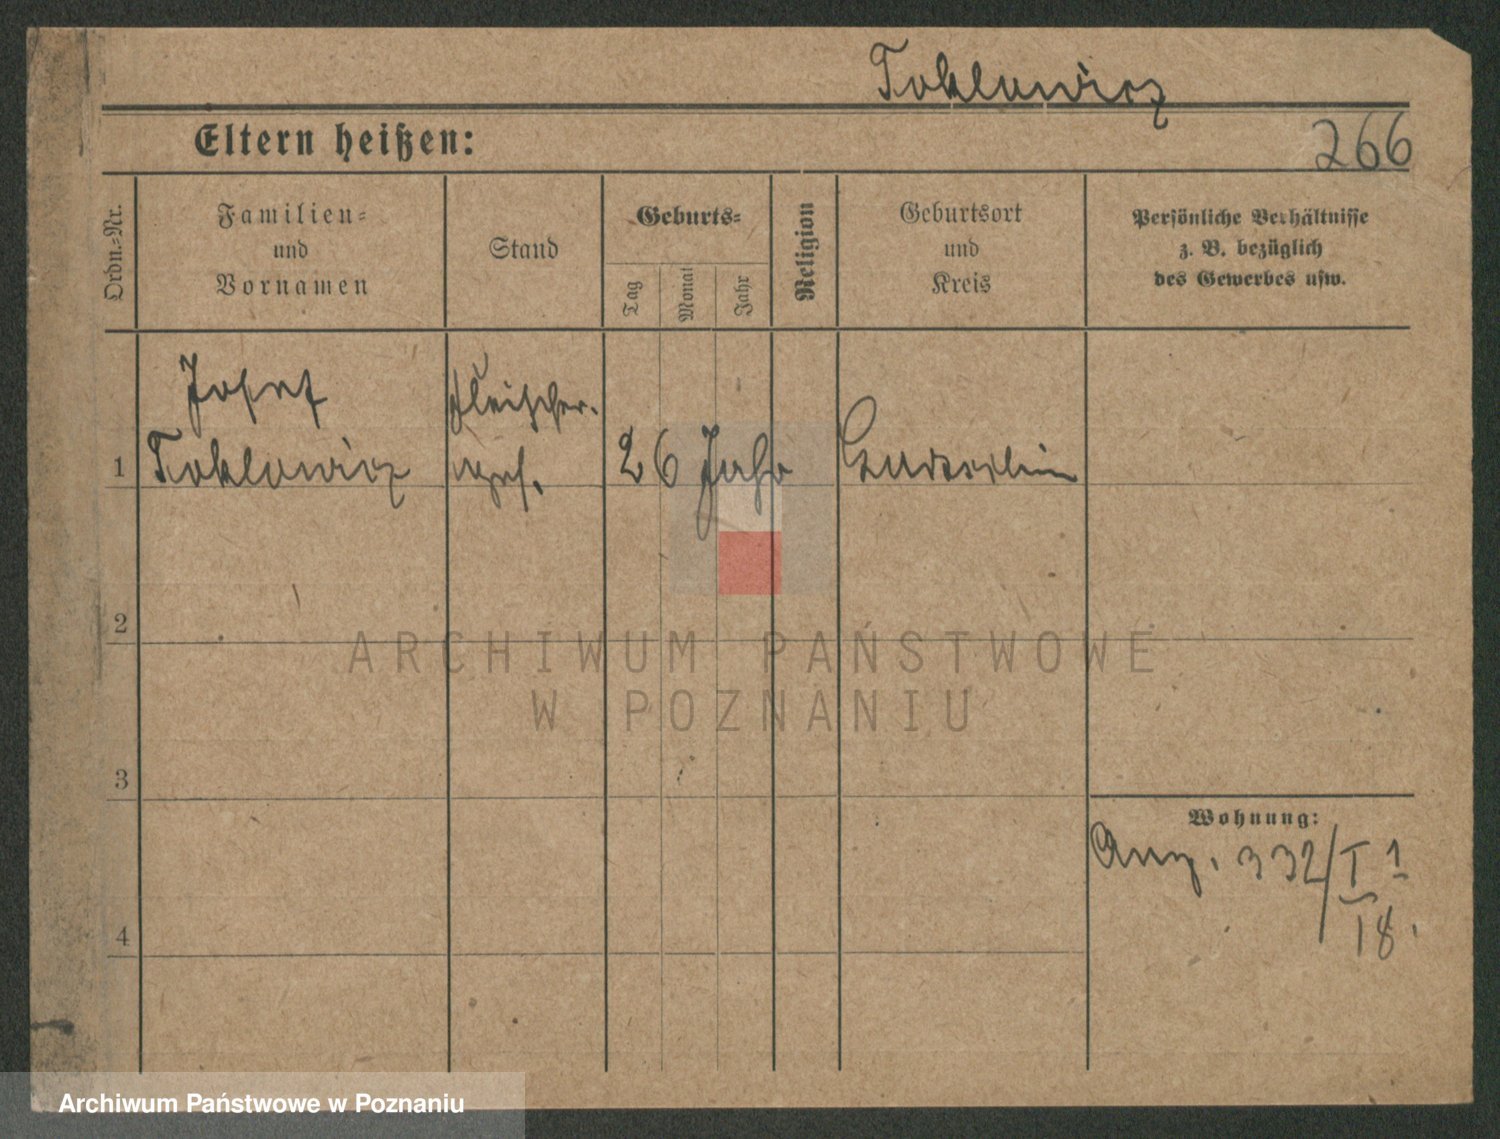 Toklowicz
Eltern heißen:
266
Ordn.-Nr.
Familien-
und
Vornamen
Stand
Geburts-
Tag
Monat
Jahr
Religion
Geburtsort
und
Kreis
Persönliche Verhältnisse
z. B. bezüglich
des Gewerbes usw.
Josef
Fleischer-
1 Toklowicz ges. 26 Jahr
2
3
4
Wohnung:
332/I 1
18.
ARCHIWUM PAŃSTWOWE
W POZNANIU
Archiwum Państwowe w Poznaniu